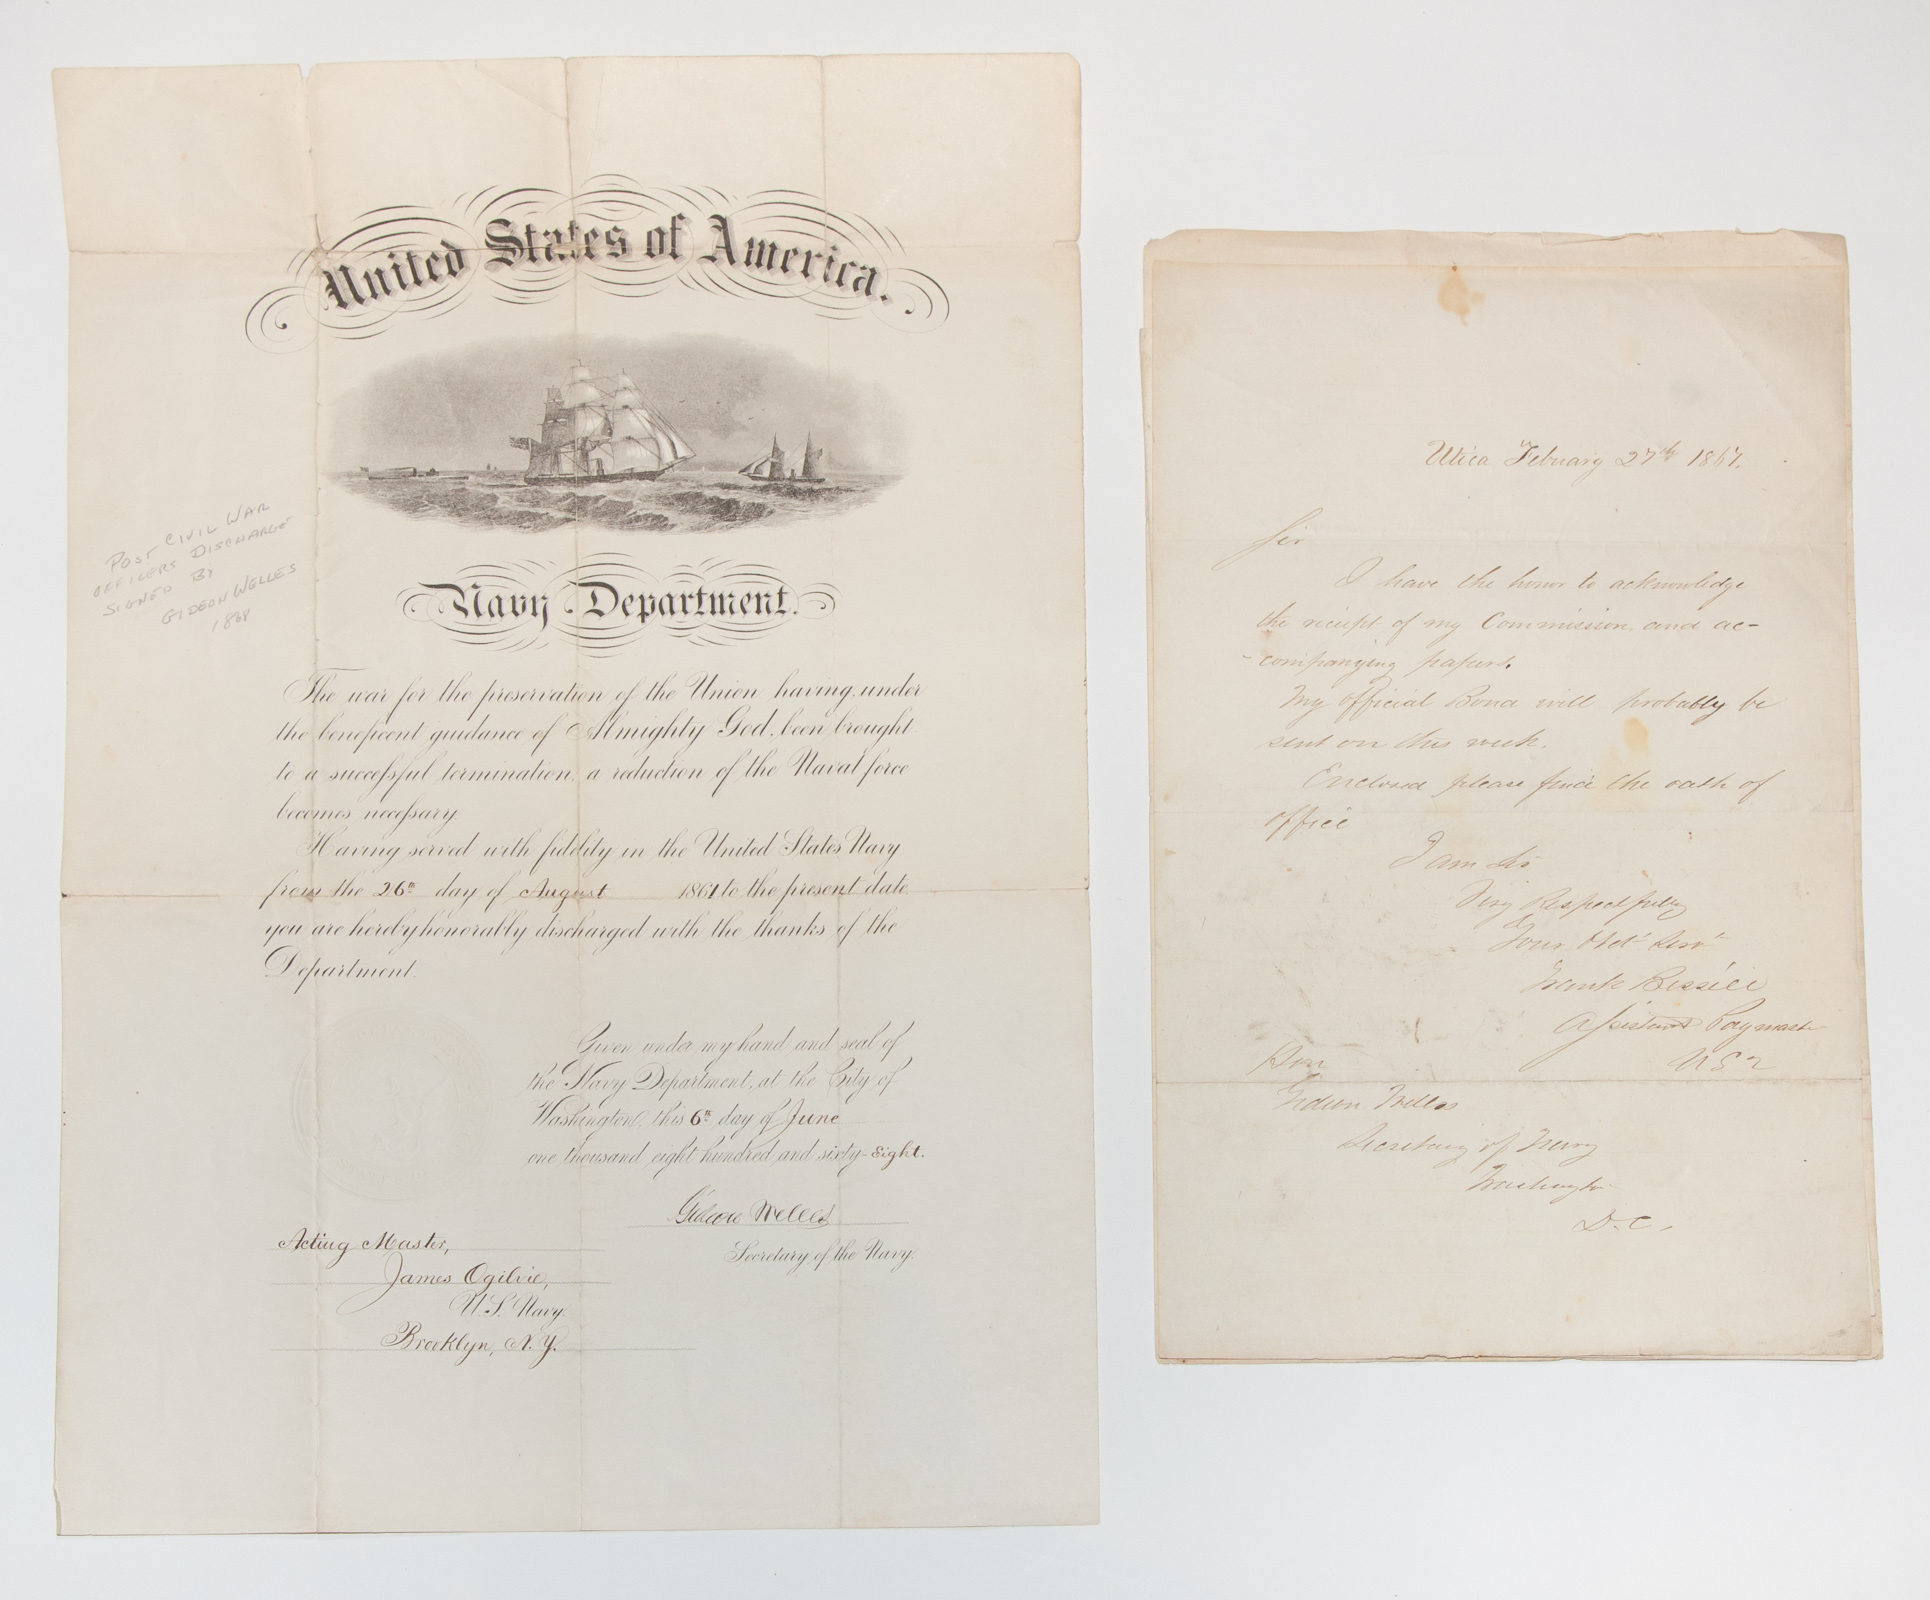 United States of America.
Navy Department.
POST CIVIL WAR
OFFICERS DISCHARGE
SIGNED BY
GIDEON WELLES
1868
The war for the preservation of the Union having, under
the beneficent guidance of Almighty God, been brought
to a successful termination, a reduction of the Naval force
becomes necessary.
Having served with fidelity in the United States Navy
from the 26th day of August 1861 to the present date,
you are hereby honorably discharged with the thanks of the
Department.
Given under my hand and seal of
the Navy Department, at the City of
Washington, this 6th day of June
one thousand eight hundred and sixty-eight.
Gideon Welles
Secretary of the Navy.
Acting Master,
James Ogilvie,
U.S. Navy.
Brooklyn, N.Y.
Utica February 27th 1867.
Sir
I have the honor to acknowledge
the receipt of my Commission and ac-
-companying papers.
My official Bond will probably be
sent on this week.
Enclosed please find the oath of
office
I am Sir
Very Respectfully
Your Obt Servt
Frank Bissell
Assistant Paymaster
USN
Hon
Gideon Welles
Secretary of Navy
Washington
D.C.